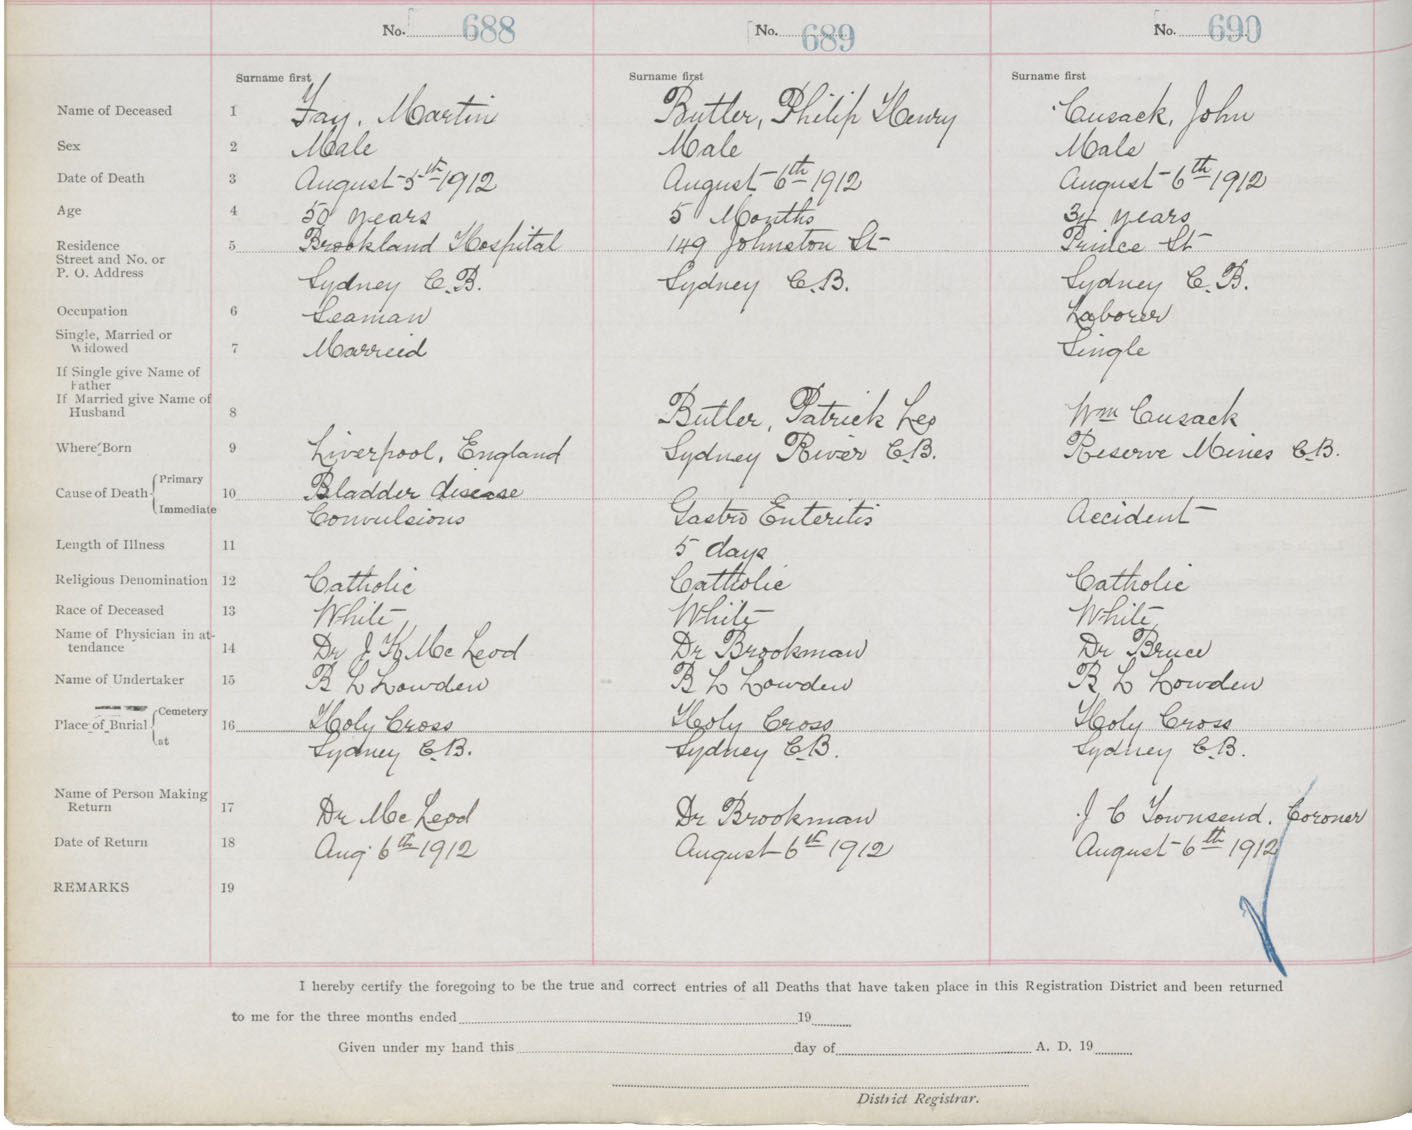 No. 688 No. 689 No. 690
Surname first Surname first Surname first
Name of Deceased 1 Fay, Martin Butler, Philip Henry Cusack, John
Sex 2 Male Male Male
Date of Death 3 August 5th 1912 August 6th 1912 August 6th 1912
Age 4 50 years 5 Months 34 years
Residence 5 Brookland Hospital 149 Johnston St Prince St
Street and No. or
P. O. Address Sydney C.B. Sydney C.B. Sydney C.B.
Occupation 6 Seaman Laborer
Single, Married or
Widowed 7 Marreid Single
If Single give Name of
Father
If Married give Name of
Husband 8 Butler, Patrick Leo Wm Cusack
Where Born 9 Liverpool, England Sydney River C.B. Reserve Mines C.B.
Primary Bladder disease
Cause of Death 10
Immediate Convulsions Gastro Enteritis Accident
Length of Illness 11 5 days
Religious Denomination 12 Catholic Catholic Catholic
Race of Deceased 13 White White White
Name of Physician in at-
tendance 14 Dr J K McLeod Dr Brookman Dr Bruce
Name of Undertaker 15 B L Lowden B L Lowden B L Lowden
Cemetery
Place of Burial 16 Holy Cross Holy Cross Holy Cross
at Sydney C.B. Sydney C.B. Sydney C.B.
Name of Person Making
Return 17 Dr McLeod Dr Brookman J C Townsend, Coroner
Date of Return 18 Aug 6th 1912 August 6th 1912 August 6th 1912
REMARKS 19
I hereby certify the foregoing to be the true and correct entries of all Deaths that have taken place in this Registration District and been returned
to me for the three months ended 19
Given under my hand this day of A. D. 19
District Registrar.